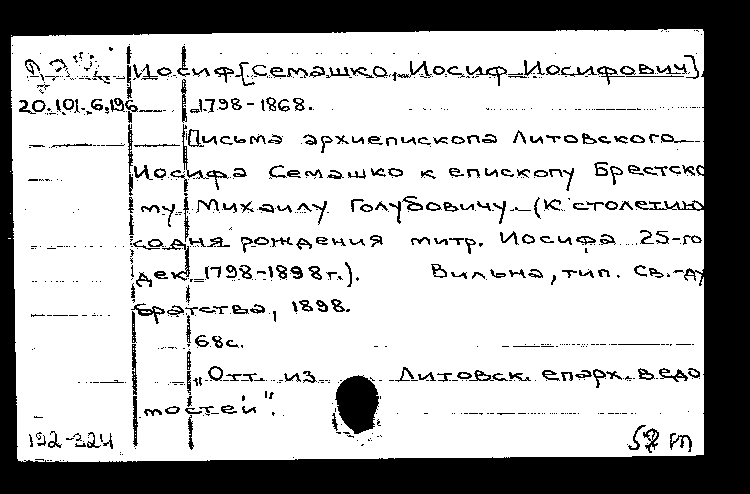 Иосиф[Семашко, Иосиф Иосифович],
20.101.6.196 1798-1868.
Письма архиепископа Литовского
Иосифа Семашко к епископу Брестско
му Михаилу Голубовичу. (К столетию
со дня рождения митр. Иосифа 25-го
дек. 1798-1898г.). Вильна, тип. Св.-ду
братства, 1898.
68с.
"Отт. из Литовск. епарх. ведо
мостей".
192-324